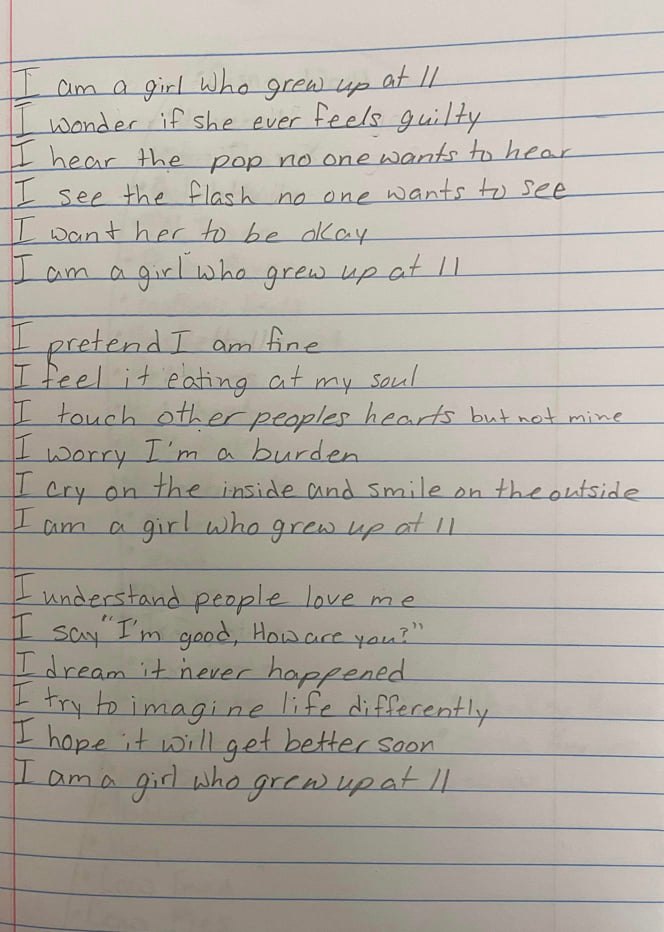 I am a girl who grew up at 11
I wonder if she ever feels guilty
I hear the pop no one wants to hear
I see the flash no one wants to see
I want her to be okay
I am a girl who grew up at 11
I pretend I am fine
I feel it eating at my soul
I touch other peoples hearts but not mine
I worry I'm a burden
I cry on the inside and smile on the outside
I am a girl who grew up at 11
I understand people love me
I say "I'm good, How are you?"
I dream it never happened
I try to imagine life differently
I hope it will get better soon
I am a girl who grew up at 11